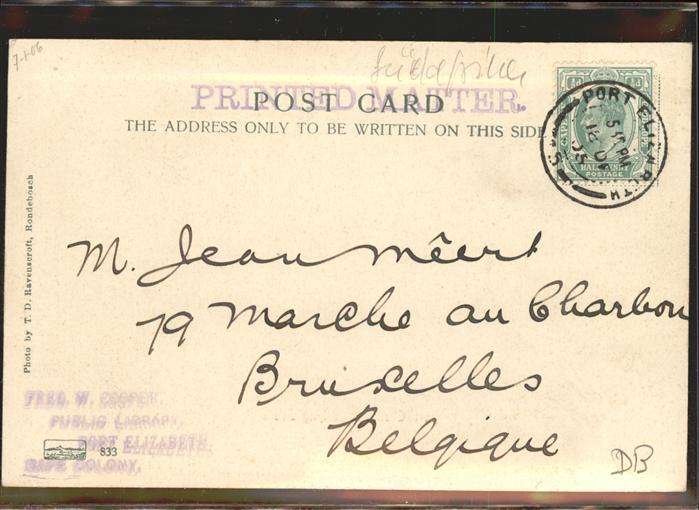 7-1-06
Südafrika
PRINTED MATTER.
POST CARD
THE ADDRESS ONLY TO BE WRITTEN ON THIS SIDE
PORT ELIZABETH
HALFPENNY
POSTAGE
M. Jean Mêert
79 Marche au Charbon
Bruxelles
Belgique
Photo by T. D. Ravenscroft, Rondebosch
FRED W. COOPER,
PUBLIC LIBRARY,
PORT ELIZABETH,
CAPE COLONY.
833
DB